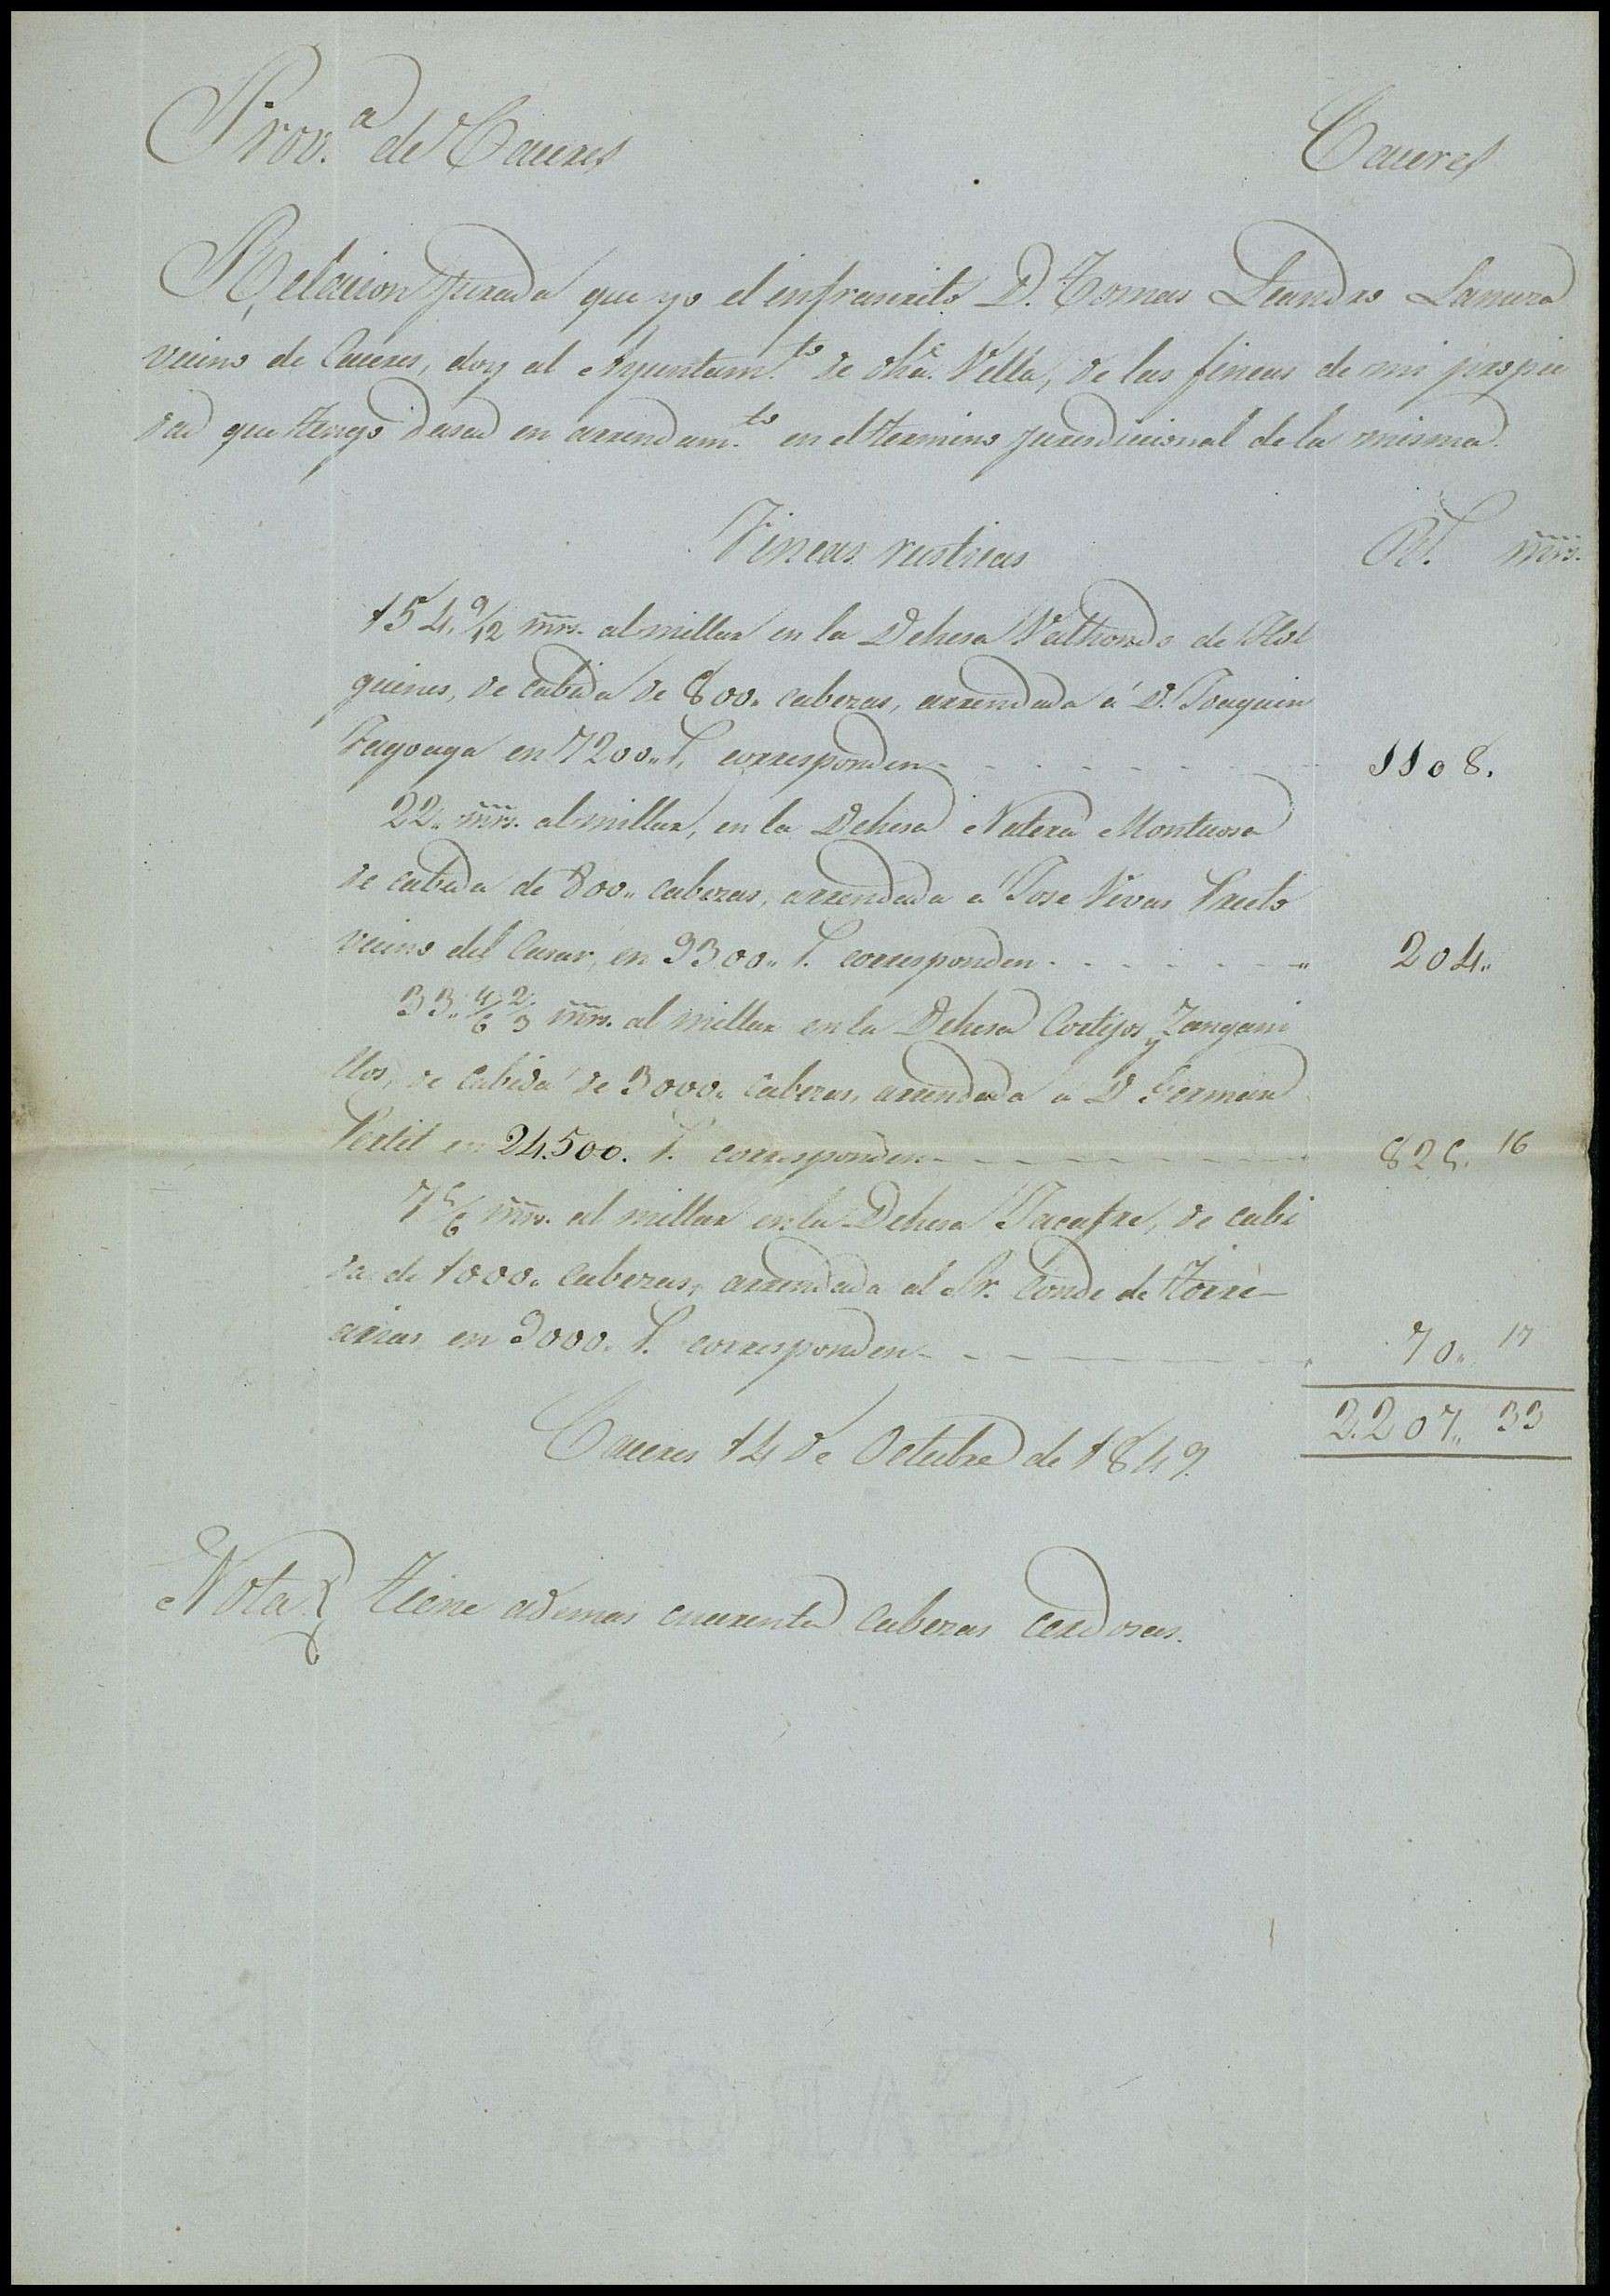 Prov.ª de Caceres Caceres
Relacion jurada que yo el infrascrito D. Tomas Leandro Lancera
vecino de Caceres, doy al Ayuntam.to de dha. Villa, de las fincas de mi propie
dad que tengo dadas en arrendam.to en el termino jurisdiccional de la misma.
Fincas rusticas Rs. mrs.
154. 9/12 mrs. al millar en la Dehesa Valhondo de
guines, de cabida de 800. cabezas, arrendada á D. Joaquin
Fagoaga en 7200. rs. corresponden 1108.
22. mrs. al millar, en la Dehesa Natera Montuosa
de cabida de 800. cabezas, arrendada á Jose Vivas Prieto
vecino del Casar, en 9300. rs. corresponden 204.
33. 4/6 2/3 mrs. al millar en la Dehesa Cortijos y Zangani
llos, de cabida de 3000. cabezas, arrendada á D. German
Petit en 24.500. rs. corresponden 825. 16
7 5/6 mrs. al millar en la Dehesa, de cabi
da de 1000. cabezas, arrendada al Sr. Conde de Torre-
arias en 9000. rs. corresponden 70. 17
2.207. 33
Caceres 14 de Octubre de 1849.
Nota Tiene ademas cuarenta cabezas cerdosas.